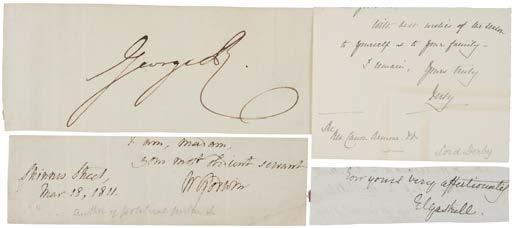 George R.
With best wishes of the season
to yourself & to your family -
I remain, Yours truly
Derby
The
Lord Derby
I am, madam,
your most obedient servant
W Godwin
Skinner Street,
Mar. 12, 1811.
author of political justice
Ever yours very affectionately
E C Gaskell.